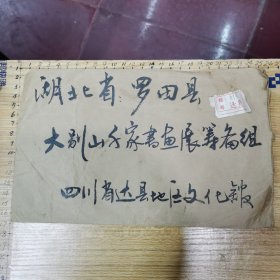 湖北省罗田县
大别山千家书画展筹备组
四川省达县地区文化馆